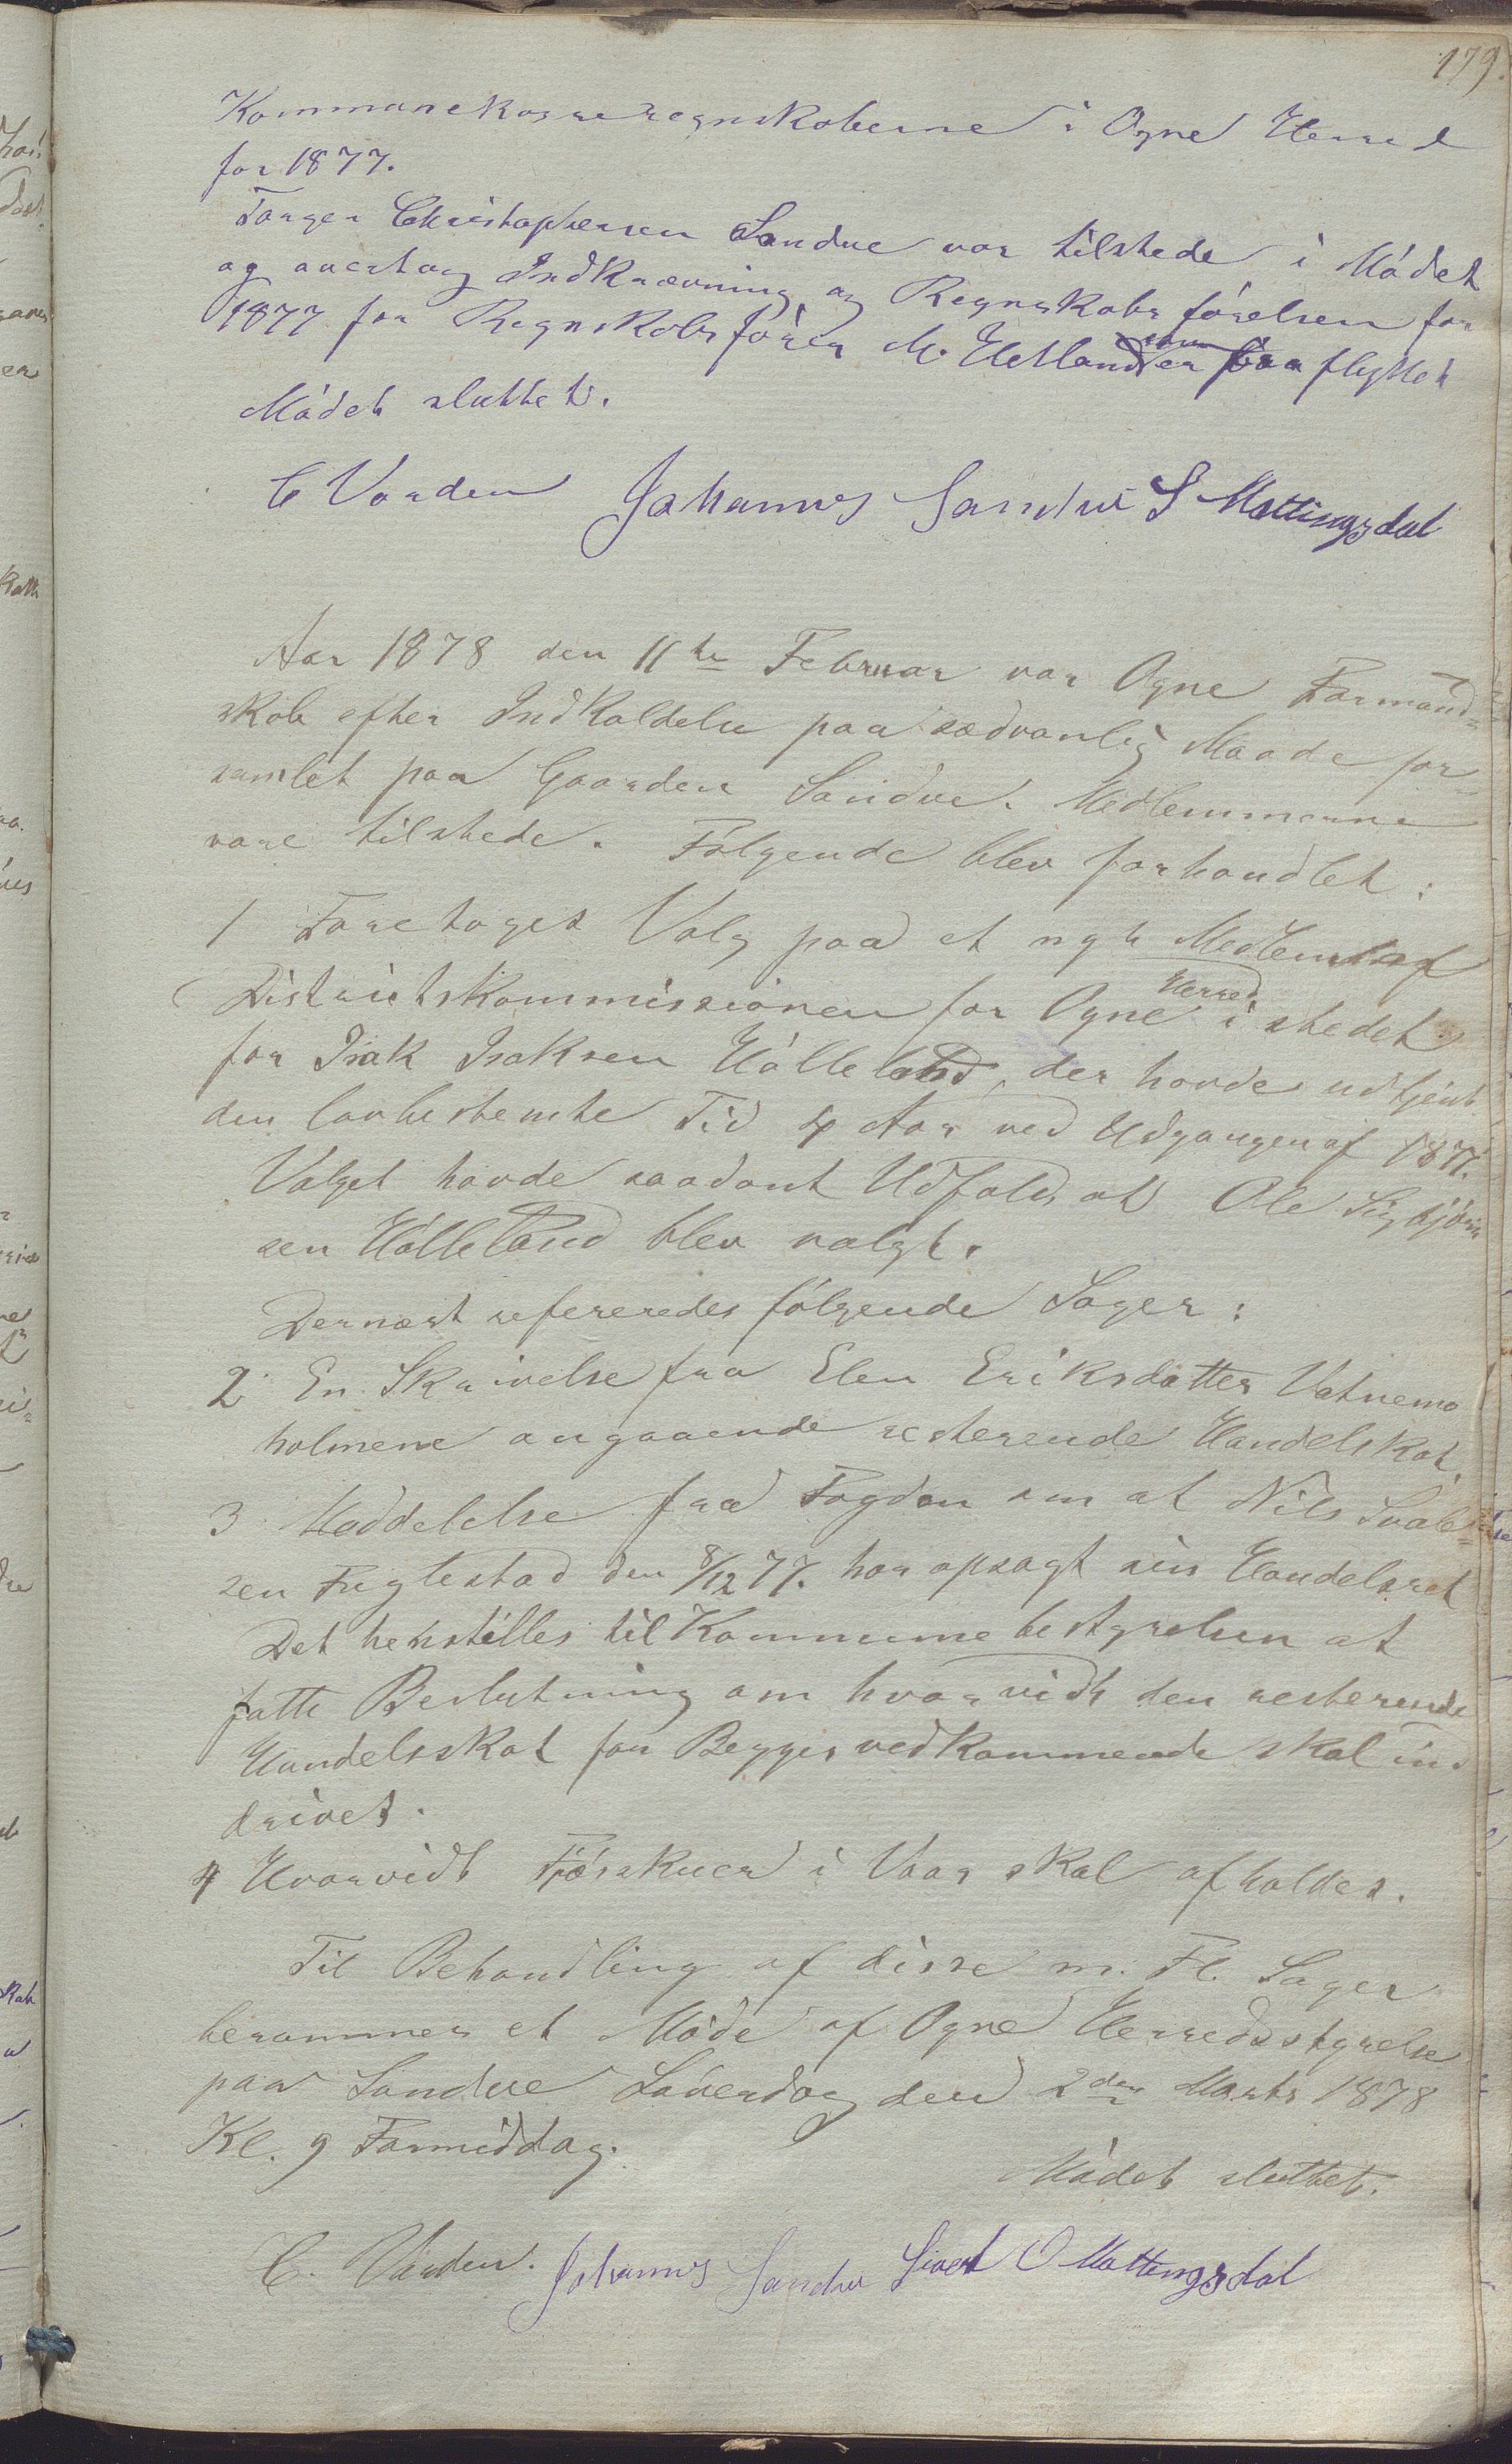 179.
Kommunekasseregnskaberne i Ogne Herred
for 1877.
Torger Christophersen Sandve var tilstede i Mödet
og overtog Indkrævning og Regnskabsförelsen for
1877 fra Regnskabsförer M. Hetland som er fraflyttet
Mödet sluttet.
C Varden Johannes Sandve S Mattingsdal
Aar 1878 den 11te Februar var Ogne Formand-
skab efter Indkaldelse paa sædvanlig Maade for-
samlet paa Gaarden Sandve. Medlemmerne
vare tilstede. Fölgende blev forhandlet:
1 Foretoges Valg paa et nyt Medlem af
Districtskommissionen for Ogne Herred i stedet
for Isak Isaksen Hölleland, der havde udtjent
den lovbestemte Tid 4 Aar ved Udgangen af 1877.
Valget havde saadant Udfald, at Ole Sigbjörn
sen Hölleland blev valgt.
Dernæst refereredes fölgende Sager:
2 En Skrivelse fra Elen Eriksdatter Vatnemo
holmene angaaende resterende Handelskat.
3 Meddelelse fra Fogden om at Nils Sval-
sen Fuglestad den 8/12 77. har opsagt sin Handelsret
Det henstilles til Kommunebestyrelsen at
fatte Beslutning om hvorvidt den resterende
Handelsskat for Begges vedkommende skal ind
drives.
4 Hvorvidt Fjösskuer i Vaar skal afholdes.
Til Behandling af disse m. Fl. Sager
berammes et Möde af Ogne Herredsstyrelse
paa Sandve Löverdag den 2den Marts 1878
Kl. 9 Formiddag.
Mödet sluttet.
C. Varden. Johannes Sandve Sivert O Mattingsdal